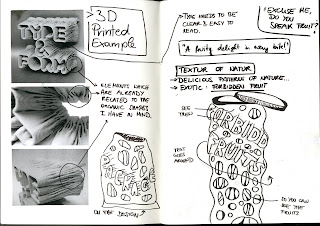 TYPE
&
FORM
3D
Printed
Example
ELEMENTS WHICH
ARE ALREADY
RELATED TO THE
ORGANIC SHAPES
I HAVE IN MIND.
ON THE DESIGN
→ TYPE NEEDS TO BE
CLEAR & EASY TO
READ.
"EXCUSE ME,
DO YOU
SPEAK FRUIT?"
"A fruity delight in every bite!"
TEXTUR OF NATUR
→ DELICIOUS PATTERNS OF NATURE...
→ EXOTIC: FORBIDDEN FRUIT
TEXT
GOES
AROUND
FRUITS
SO YOU CAN
SEE THE
FRUITS